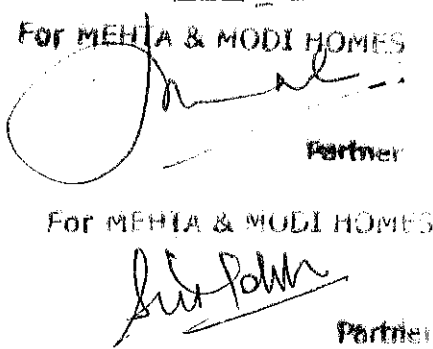 For MEHTA & MODI HOMES
Partner
For MEHTA & MODI HOMES
Partner